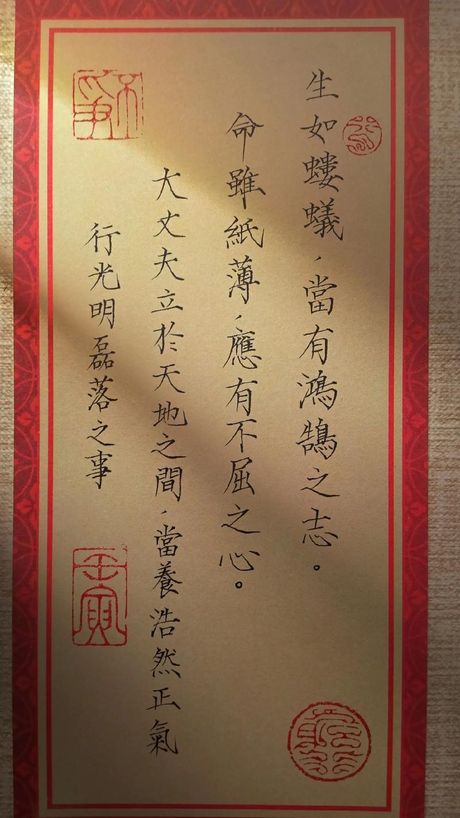 生如螻蟻，當有鴻鵠之志。
命雖紙薄，應有不屈之心。
大丈夫立於天地之間，當養浩然正氣
行光明磊落之事
不爭
壬寅